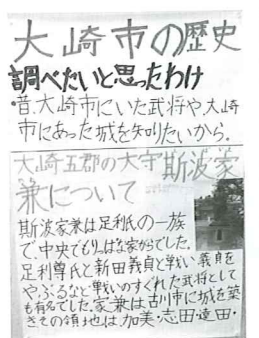 大崎市の歴史
調べたいと思ったわけ
・昔、大崎市にいた武将や、大崎
市にあった城を知りたいから。
大崎五郡の大守斯波家
兼について
斯波家兼は足利氏の一族
で、中央でもりっぱな家がらでした。
足利尊氏と新田義貞と戦い義貞を
やぶるなど戦いのすぐれた武将として
も有名でした。家兼は古川市に城を築
きその領地は、加美・志田・遠田・